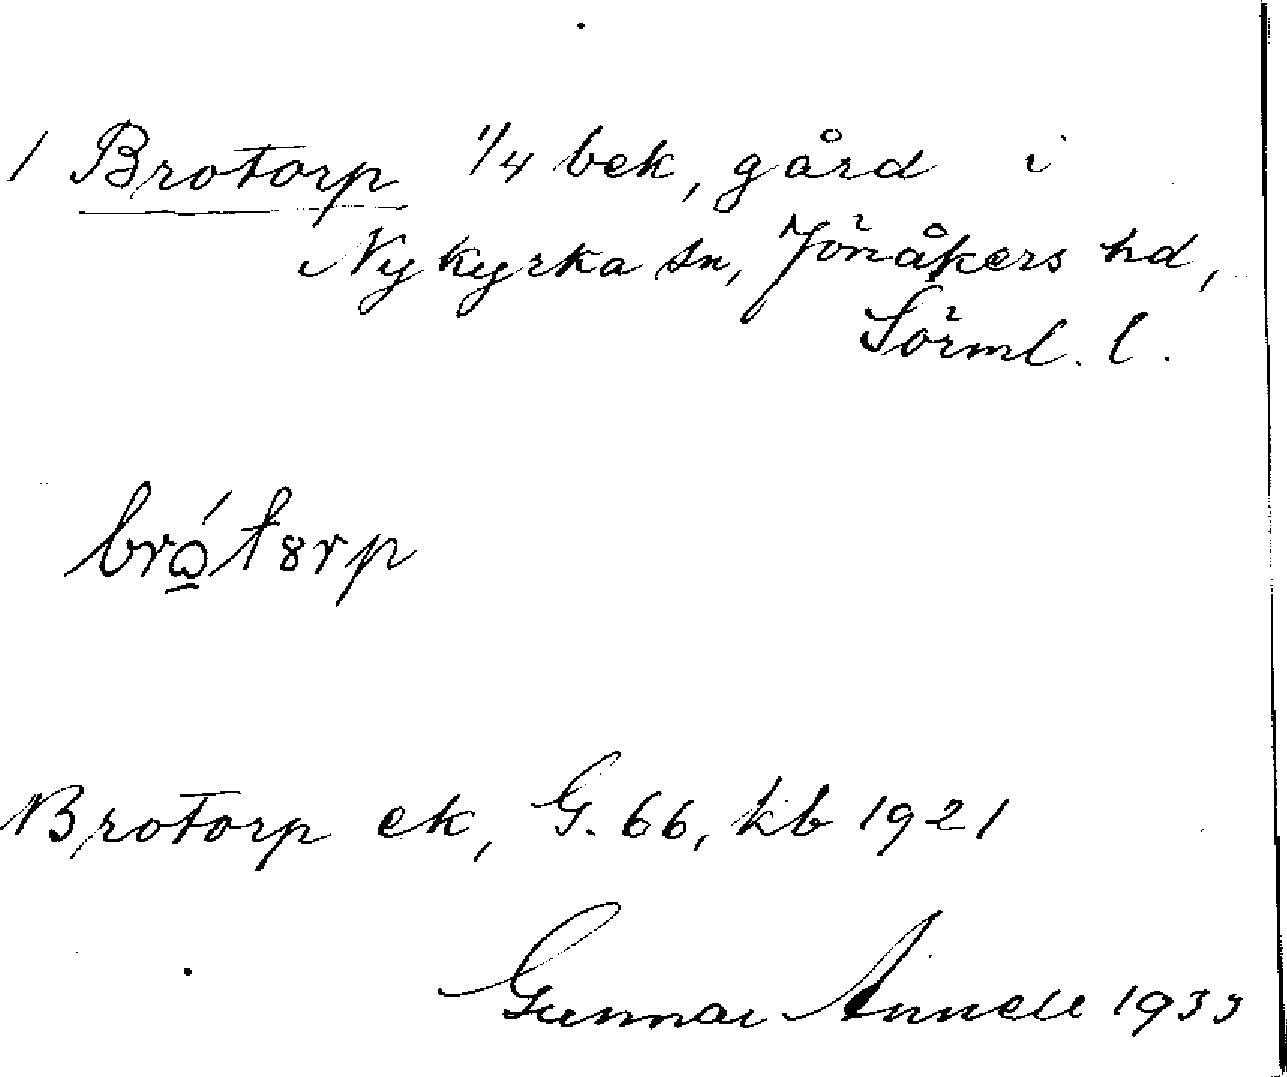 1 Brotorp 1/4 bek, gård i
Nykyrka sn, Jönåkers hd,
Sörml. l.
Brotorp ek, G. 66, kb 1921
Gunnar Annell 1933